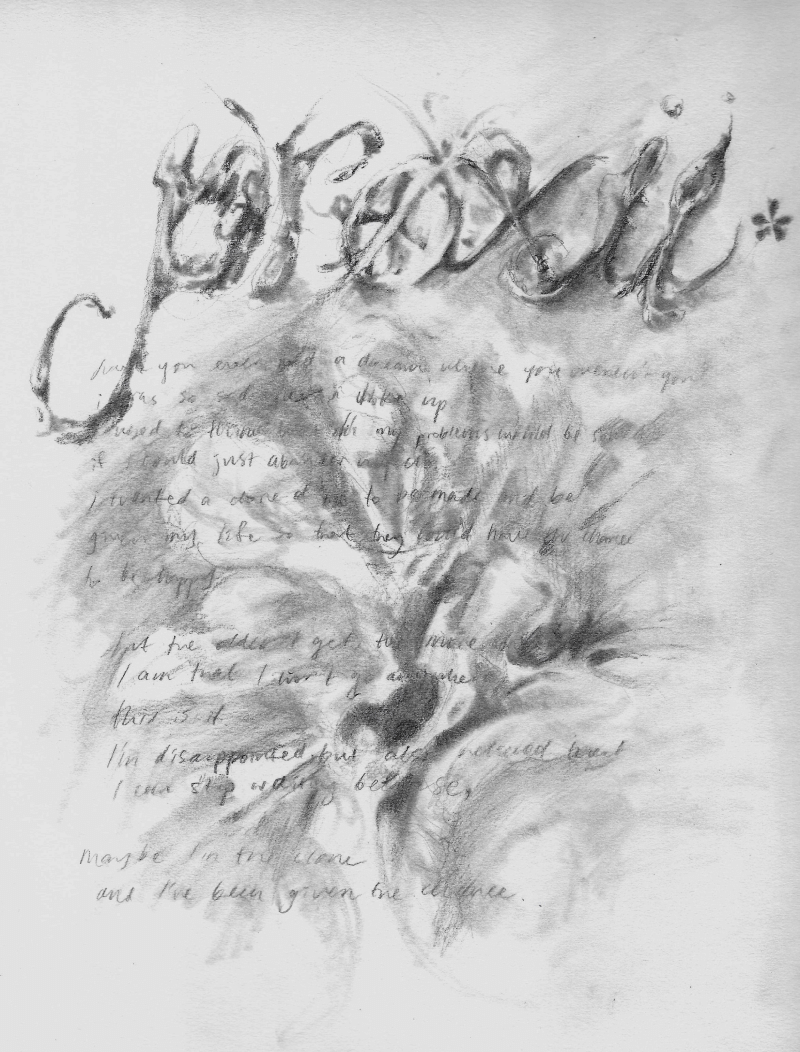 have you ever had a dream where you weren't you?
i was so sad when i woke up
i used to think that all my problems would be
if i could just abandon
i wanted a clone of me to be made and be
given my life so that they could have the chance
to be happy
but the older I get, the more
I am that I won't go anywhere
this is it
I'm disappointed but also relieved that
I can stop waiting because,
maybe I'm the clone
and I've been given the chance.